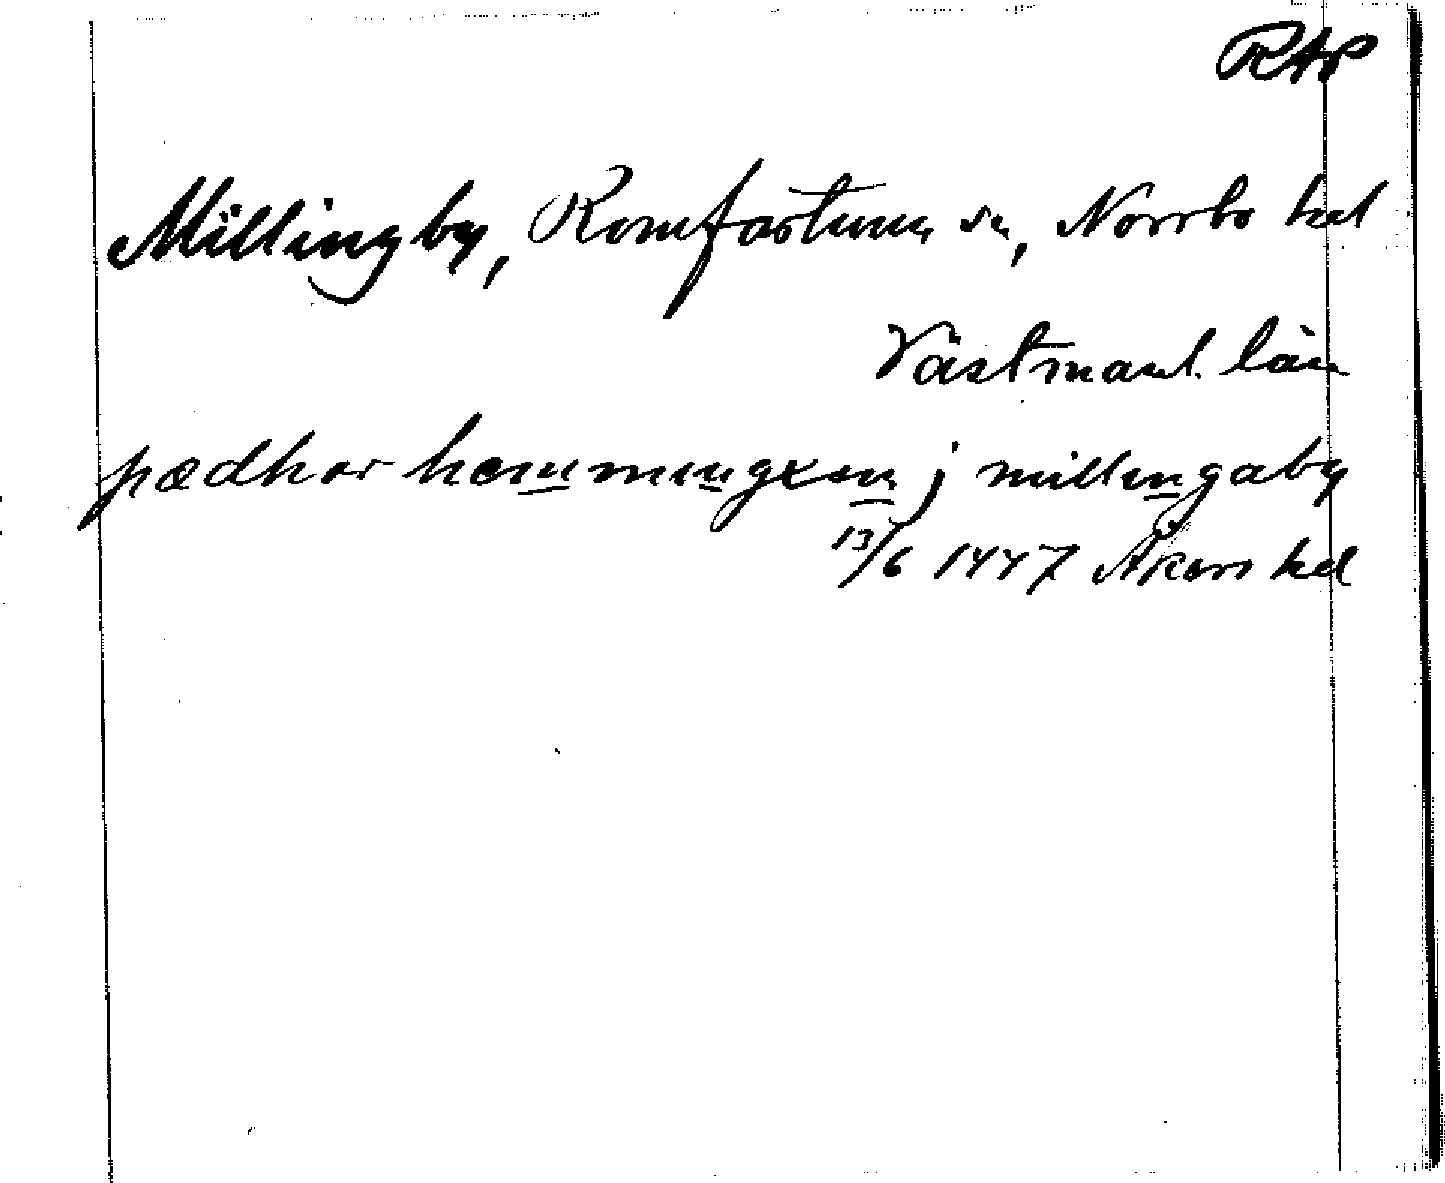 RAP
Millingby, Romfartuna sn, Norrbo hd
Västmanl. län
pædhar hemmingxen j millingaby
13/6 1447 Åkers hd